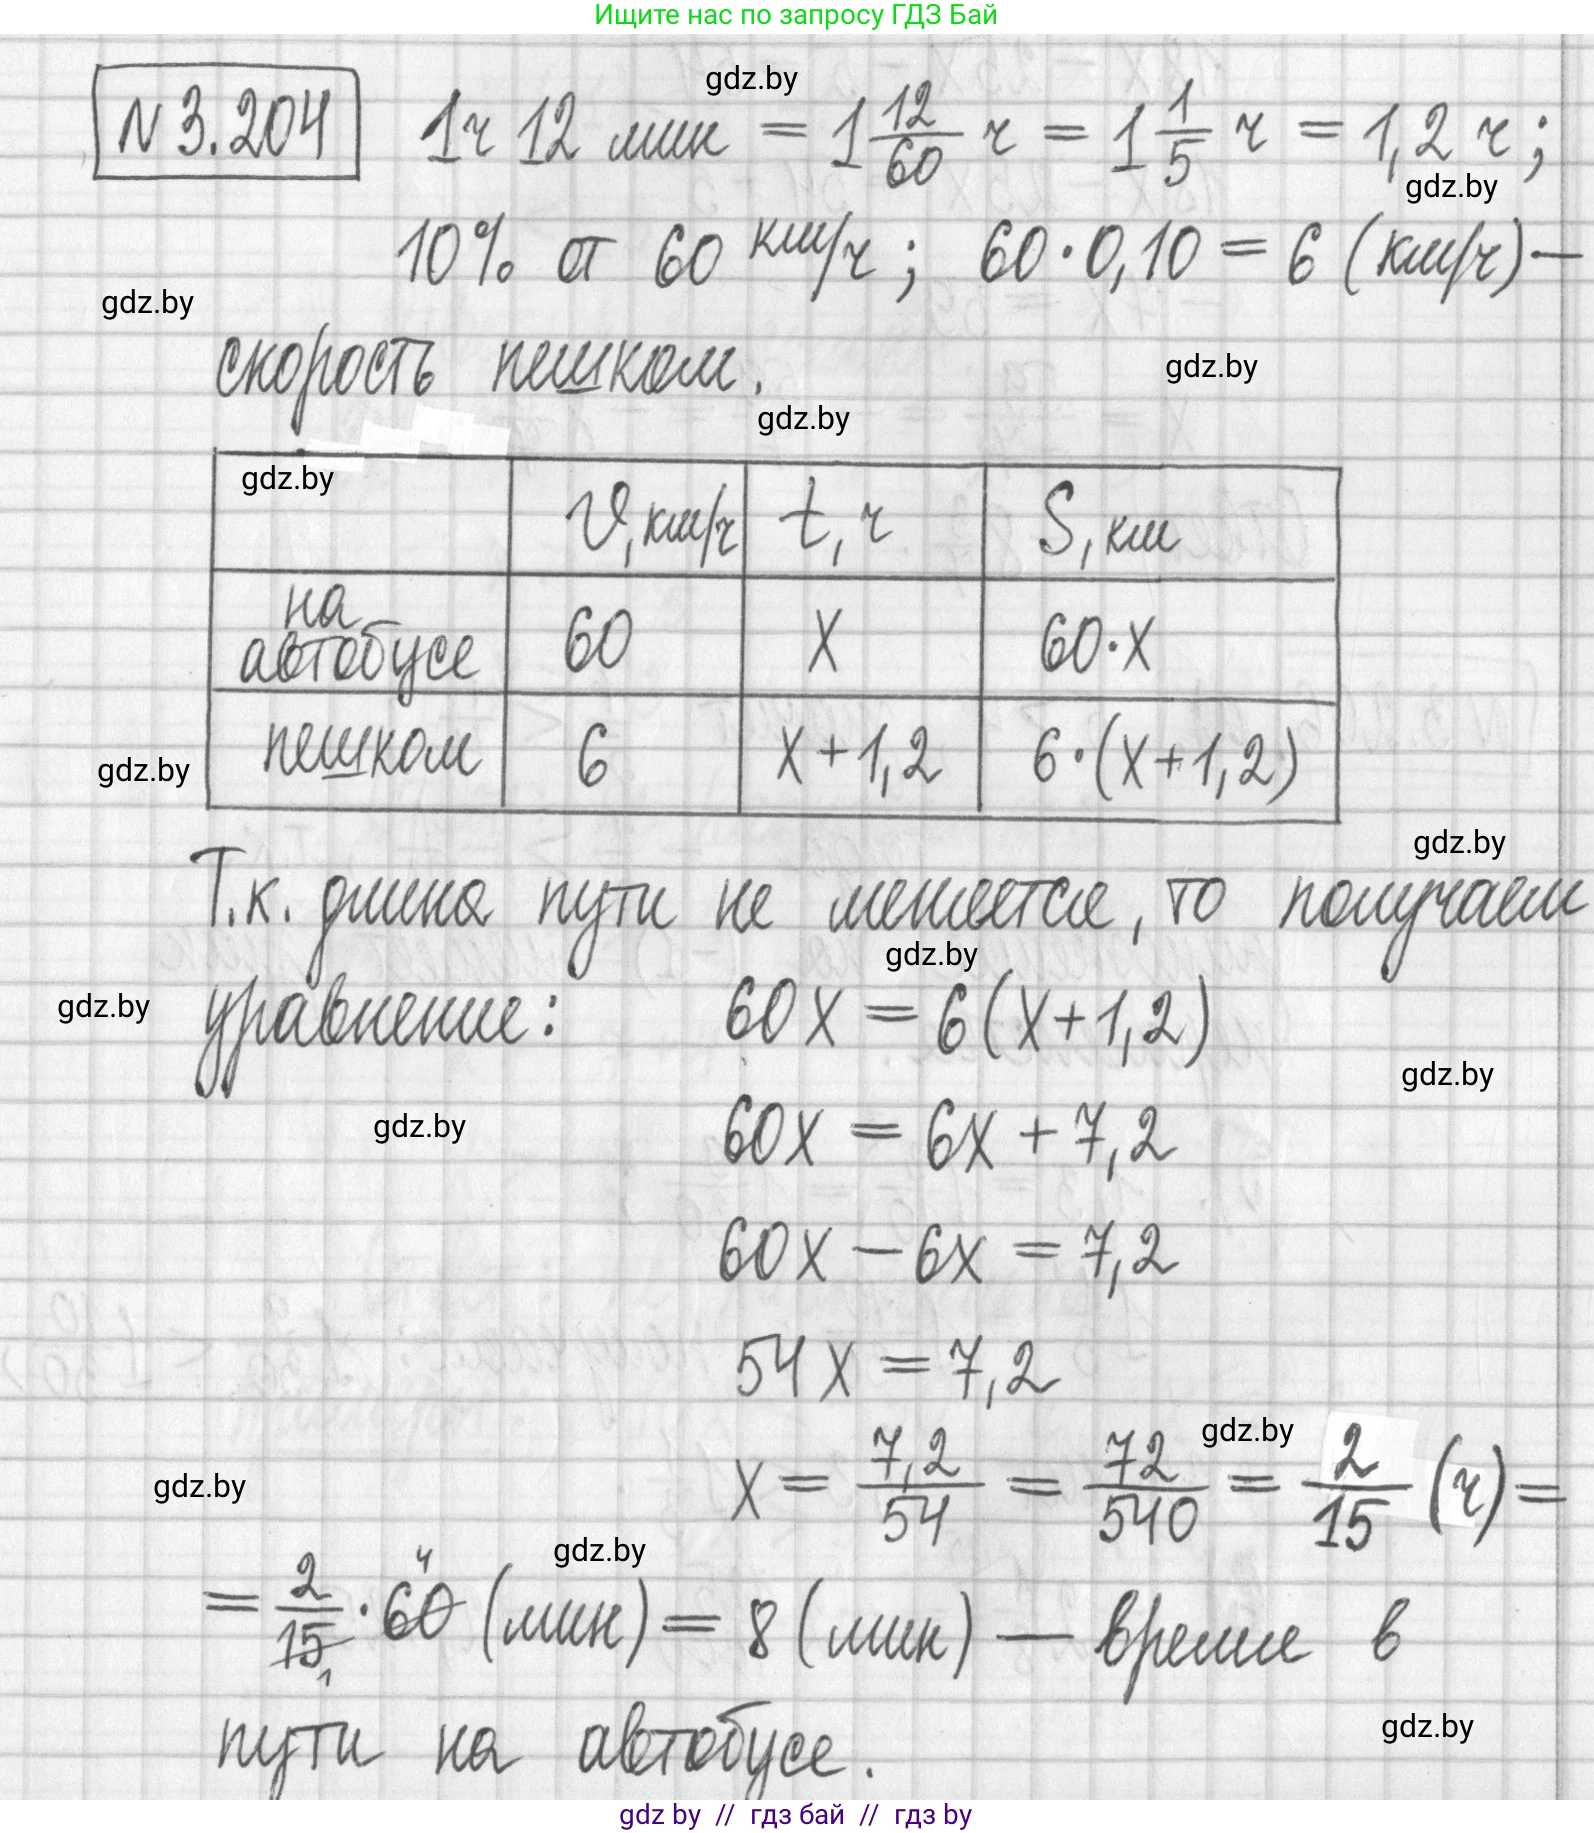 Ищите нас по запросу ГДЗ Бай
gdz.by
N 3.204 1ч 12 мин = 1 12/60 ч = 1 1/5 ч = 1,2 ч;
gdz.by
10% от 60 км/ч; 60·0,10 = 6 (км/ч) —
gdz.by
скорость пешком.
gdz.by
gdz.by
gdz.by
v, км/ч t, ч S, км
на автобусе 60 x 60·x
пешком 6 x+1,2 6·(x+1,2)
gdz.by
gdz.by
Т.к. длина пути не меняется, то получаем
gdz.by
gdz.by
уравнение: 60x = 6(x+1,2)
gdz.by
gdz.by
60x = 6x + 7,2
60x − 6x = 7,2
54x = 7,2
gdz.by
x = 7,2/54 = 72/540 = 2/15 (ч) =
gdz.by
gdz.by
= 2/15 1 · 60 4 (мин) = 8 (мин) — время в
gdz.by
пути на автобусе.
gdz by // гдз бай // гдз by